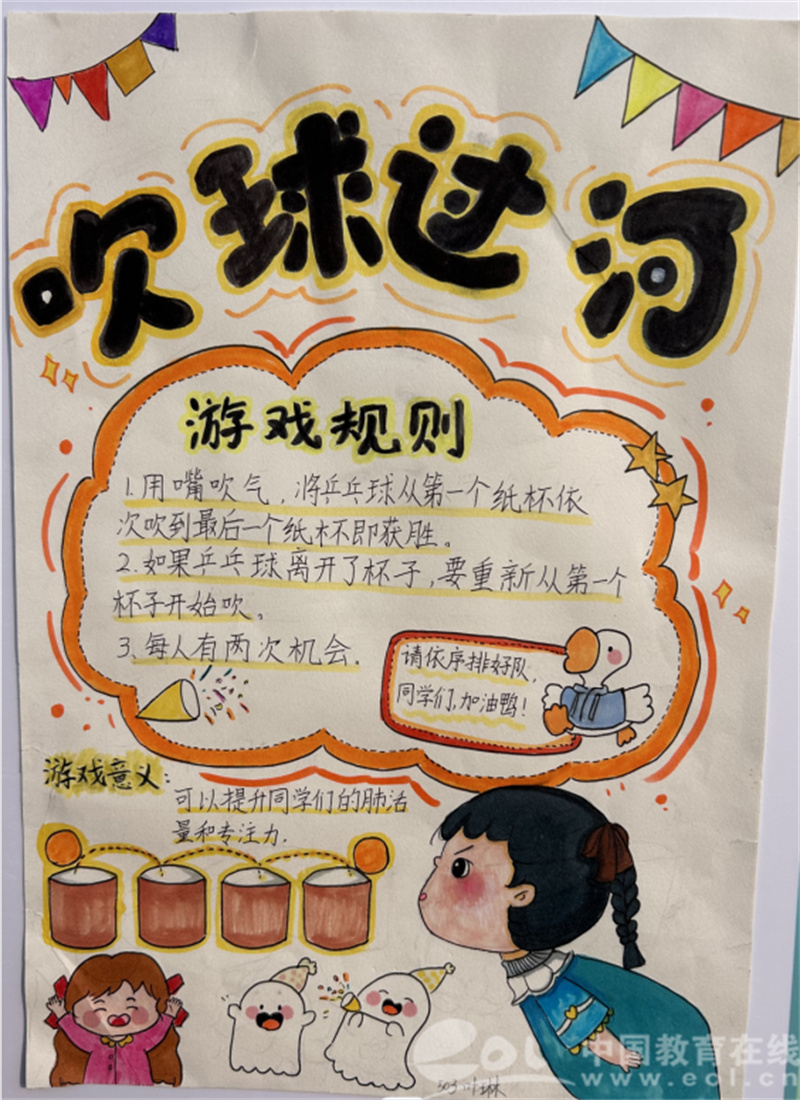 吹球过河
游戏规则
1.用嘴吹气，将乒乓球从第一个纸杯依
次吹到最后一个纸杯即获胜。
2.如果乒乓球离开了杯子，要重新从第一个
杯子开始吹。
3、每人有两次机会.
请依序排好队，
同学们，加油鸭！
游戏意义：
可以提升同学们的肺活
量和专注力.
503叶琳
eol
中国教育在线
www.eol.cn